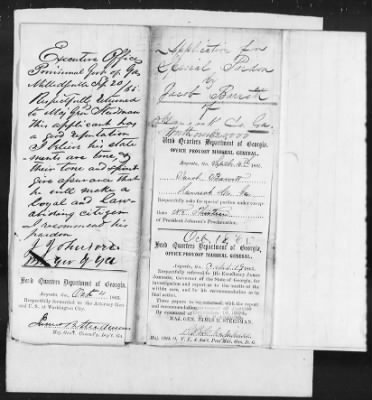 Executive Office
Provisional Gov. of Ga,
Milledgeville Sep 20/65.
Respectfully returned
to Maj Genl Steedman
this applicant has
a good reputation
I believe his state
ments are true,
their tone and spirit
give assurance that
he will make a
loyal and law
abiding citizen
I recommend his
pardon
J Johnson
Prov gov of Ga
Head Quarters Department of Georgia,
Augusta, Ga., Oct 4 1865.
Respectfully forwarded to the Attorney Gen-
eral U. S., at Washington City.
James B. Steedman
Maj. Gen'l Comd'g Dep't. Ga.
Application for
Special Pardon
by
Jacob
of
Co Ga.
Worth over 20000
Head Quarters Department of Georgia,
OFFICE PROVOST MARSHAL GENERAL,
Augusta, Ga., 1865.
Jacob
Co. Ga.
Respectfully asks for special pardon under excep-
tion No.
President Johnson's Proclamation.
Head Quarters Department of Georgia,
OFFICE PROVOST MARSHAL GENERAL,
Augusta, Ga., 1865.
Respectfully referred to His Excellency James
Johnson, Governor of the State of Georgia, for
investigation and report as to the truth of the
within case, and for his recommendation as to
final action.
These papers to be returned with the report
and recommendation
By command of
MAJ. GEN. JAMES B. STEEDMAN.